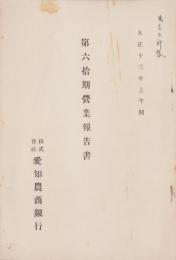 大正十三年上半期
第六拾期營業報告書
株式會社 愛知農商銀行